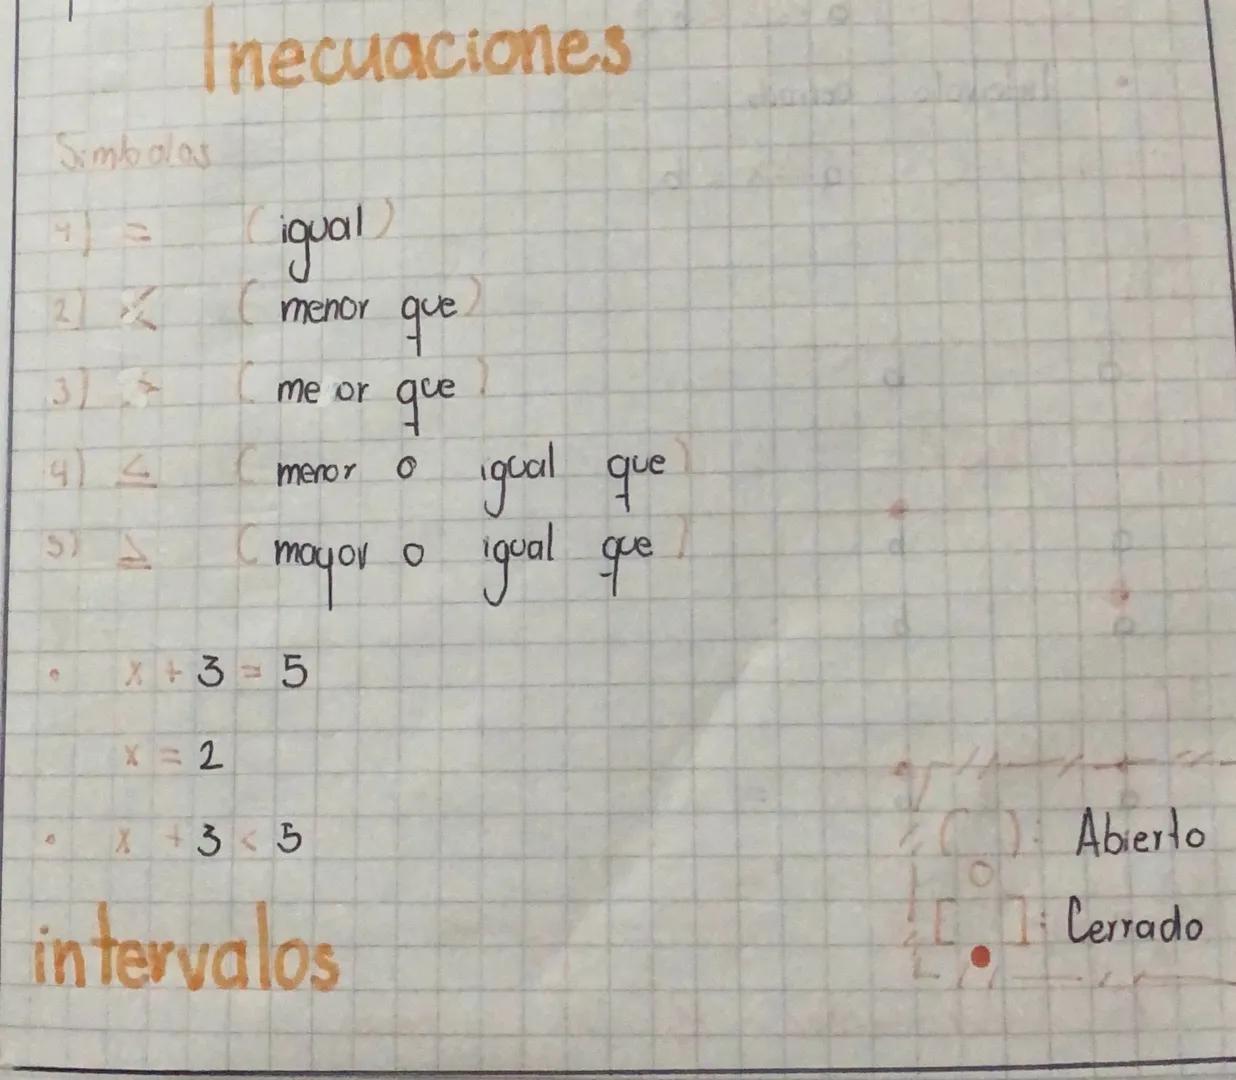 Inecuaciones
Simbolos
1) = (igual)
2) < (menor que)
3) > (me or que)
4) ≤ (menor o igual que)
5) ≥ (mayor o igual que)
• x + 3 = 5
x = 2
• x + 3 < 5
( ): Abierto
[ ]: Cerrado
intervalos